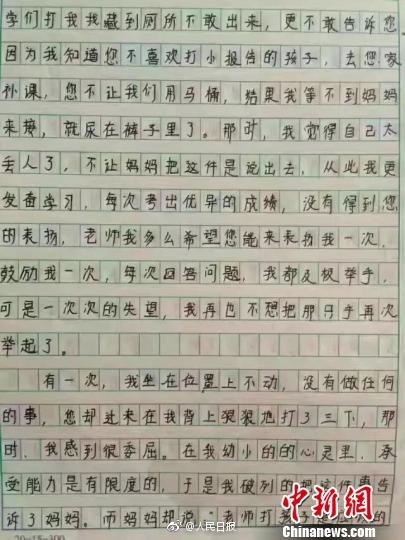 学们打我我藏到厕所不敢出来,更不敢告诉您.
因为我知道您不喜欢打小报告的孩子,去您家
补课,您不让我们用马桶,结果我等不到妈妈
来接,就尿在裤子里了。那时,我觉得自己太
丢人了,不让妈妈把这件是说出去,从此我更
发奋学习,每次考出优异的成绩,没有得到您
的表扬,老师我多么希望您能来表扬我一次,
鼓励我一次,每次回答问题,我都及极举手,
可是一次次的失望,我再也不想把那只手再次
举起了。
有一次,我坐在位置上不动,没有做任何
的事,您却过来在我背上狠狠地打了三下,那
时,我感到很委屈。在我幼小的的心灵里,承
受能力是有限度的,于是我破列的把这件事告
诉了妈妈。而妈妈却说:"老师打孩子是 的
20×15=300
@人民日报
中新网
www.chinanews.com